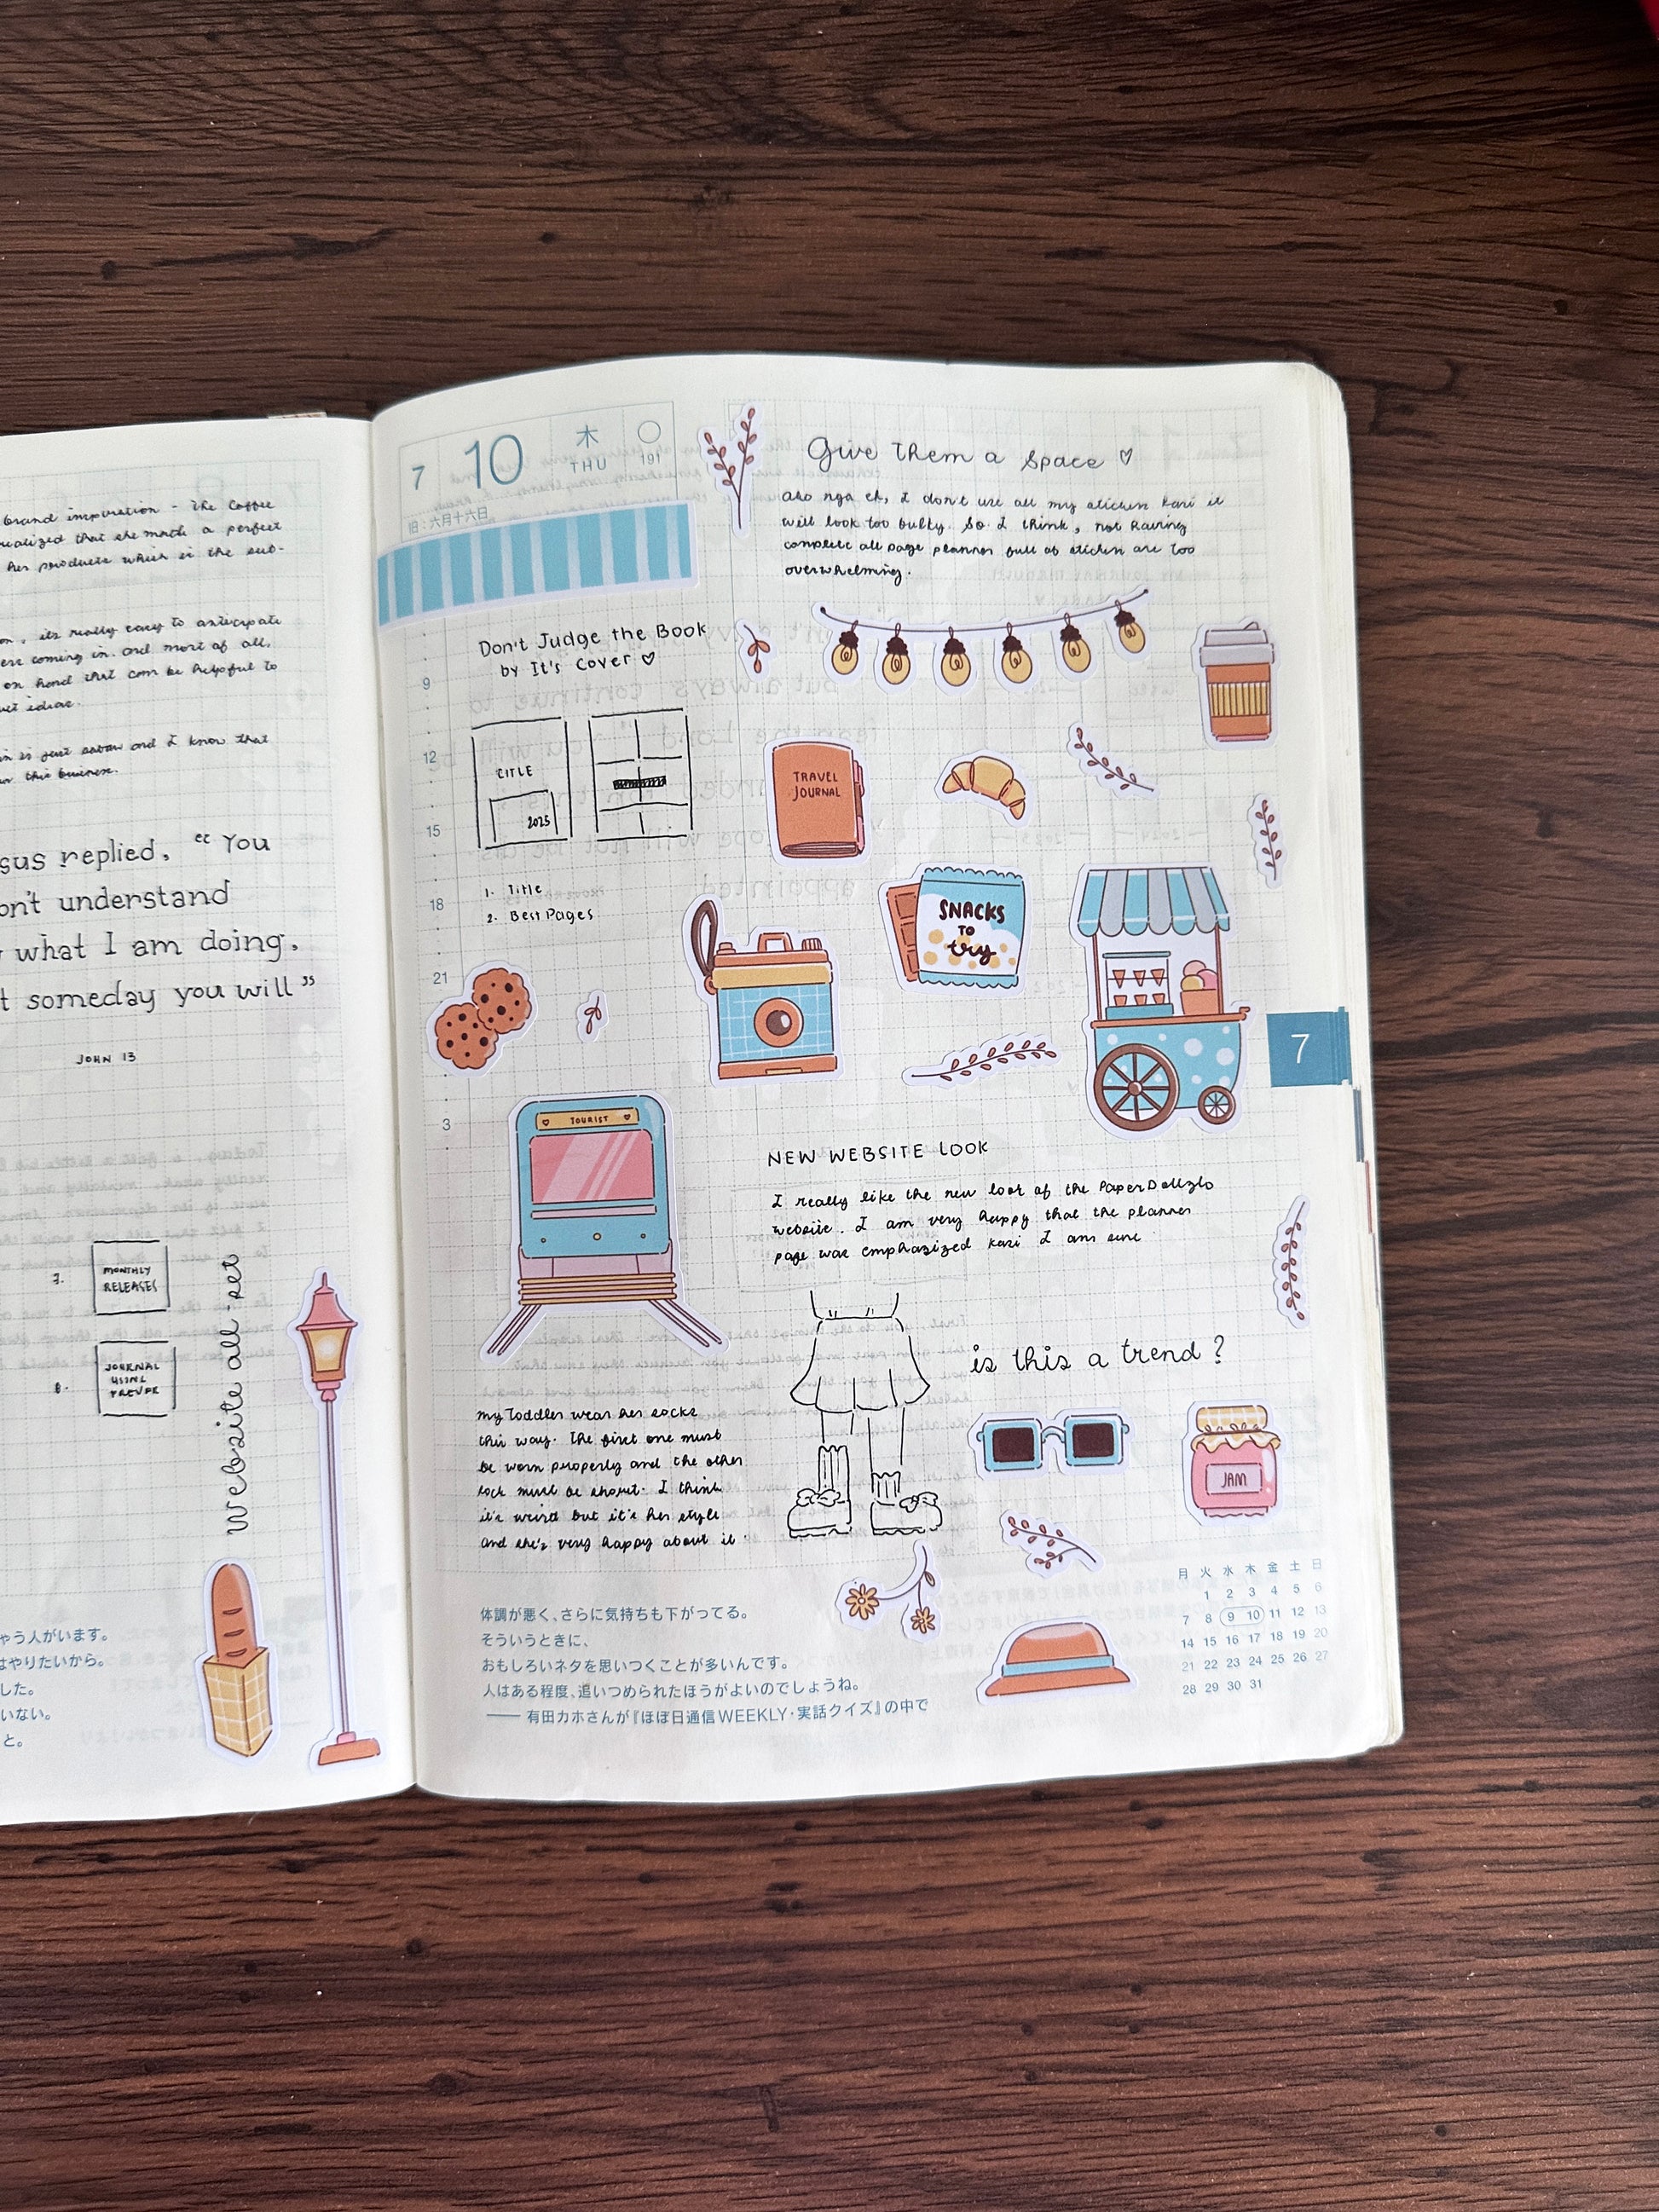 brand inspiration - the coffee
realized that she made a perfect
her products which is the sub-
on, its really easy to anticipate
were coming in. and most of all,
on hand that can be helpful to
in is just and I know that
this business.
sus replied, "You
on't understand
what I am doing.
t someday you will"
JOHN 13
7.
MONTHLY
RELEASES
8.
JOURNAL
USING
website all-set
ゃう人がいます。
はやりたいから。
した。
いない。
と。
7 10 木 THU 191
旧:六月十六日
Don't Judge the Book
by It's Cover ♡
9
12
15
18
21
3
TITLE
2025
1. Title
2. Best Pages
Give them a space ♡
Ako nga eh, I don't use all my sticker kasi it
will look too bulky. So I think, not having
complete all page planner full of sticker are too
overwhelming.
TRAVEL
JOURNAL
SNACKS
TO
try
TOURIST
7
NEW WEBSITE LOOK
I really like the new look of the PaperDollzlo
website. I am very happy that the planner
page was emphasized kasi I am sure
is this a trend?
my Toddler wear her socks
this way. The first one must
be worn properly and the other
sock must be short. I think
it's weird but it's her style
and she's very happy about it.
JAM
体調が悪く、さらに気持ちも下がってる。
そういうときに、
おもしろいネタを思いつくことが多いんです。
人はある程度、追いつめられたほうがよいのでしょうね。
—— 有田カホさんが『ほぼ日通信WEEKLY・実話クイズ』の中で
月 火 水 木 金 土 日
1 2 3 4 5 6
7 8 9 10 11 12 13
14 15 16 17 18 19 20
21 22 23 24 25 26 27
28 29 30 31